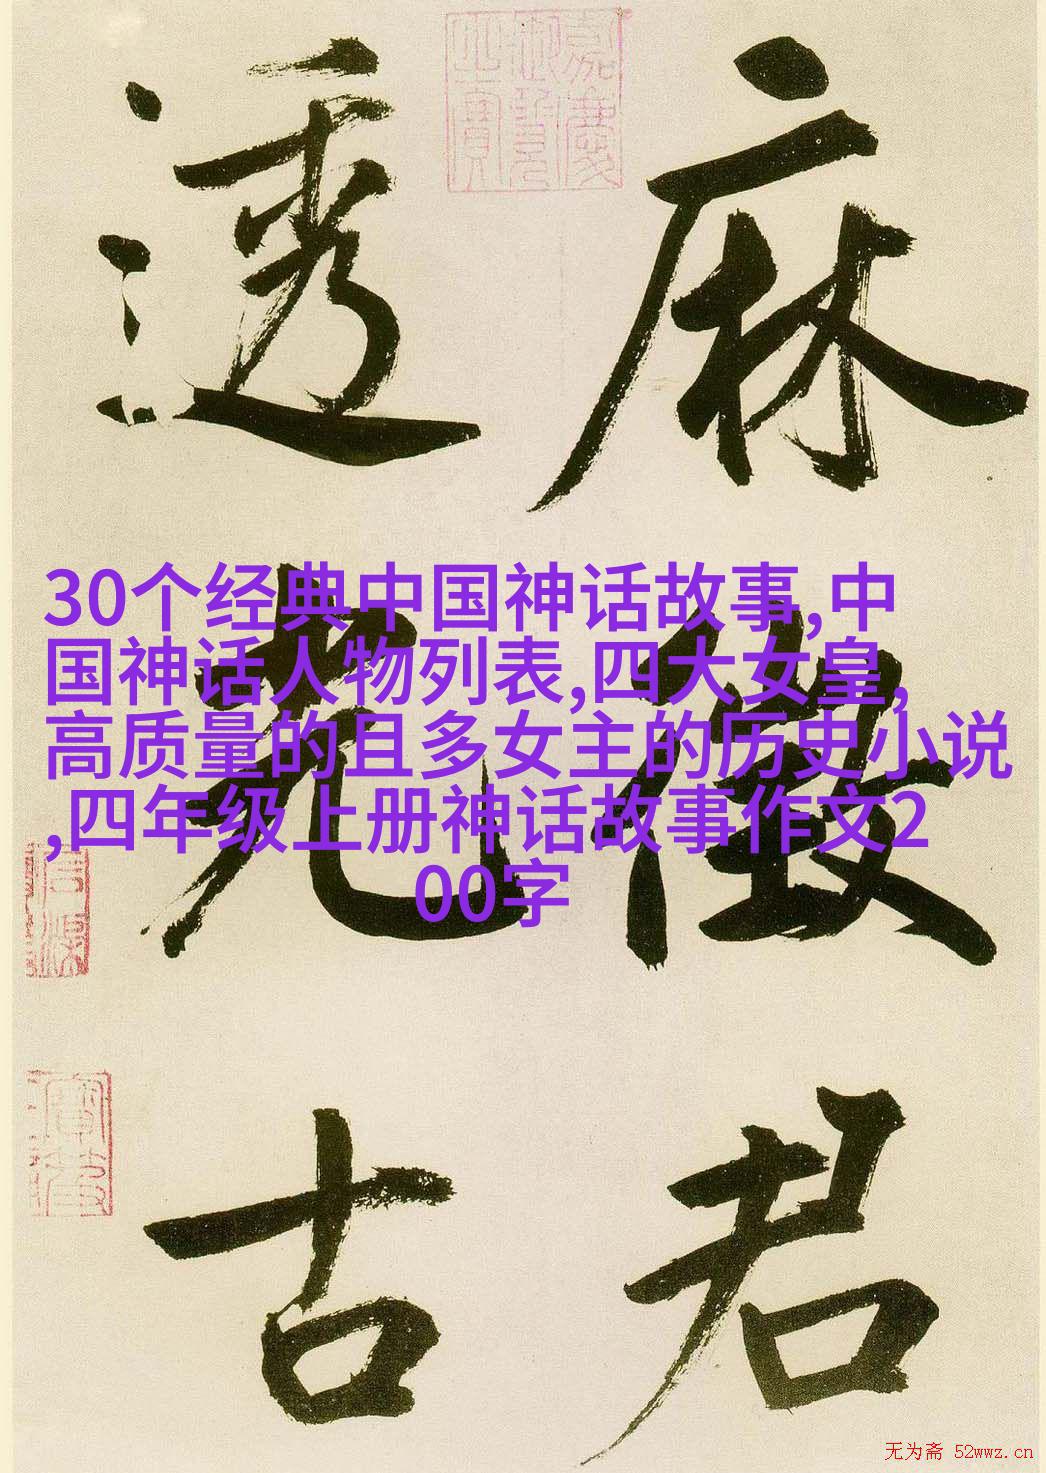 麻
徴
君
透
光
古
嘉慶
御覽
之寶
30个经典中国神话故事,中
国神话人物列表,四大女皇,
高质量的且多女主的历史小说
,四年级上册神话故事作文2
00字
无为斋 52wwz.cn